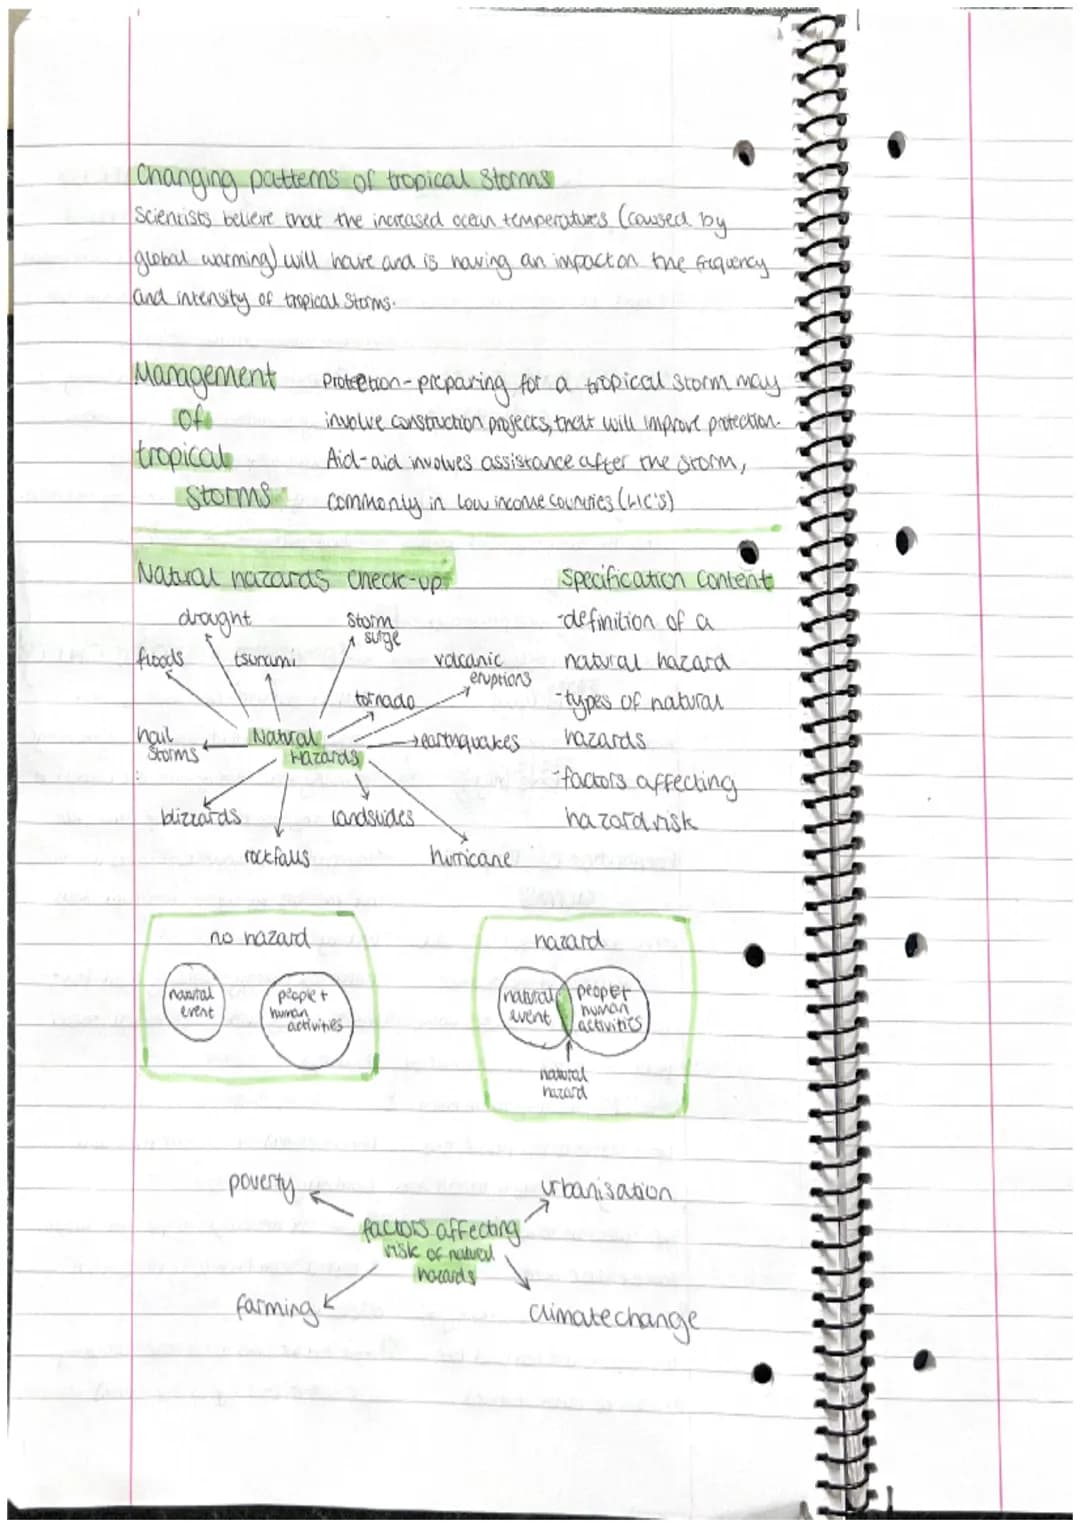 Changing patterns of tropical Storms
Scientists believe that the increased ocean temperatures (caused by
global warming) will have and is having an impact on the frequency
and intensity of tropical Storms.
Management
of
tropical
Storms
Protection - preparing for a tropical storm may
involve construction projects, that will improve protection.
Aid - aid involves assistance after the storm,
commonly in low income countries (LIC's)
Natural hazards check-up
drought
storm
surge
floods
tsunami
volcanic
eruptions
tornado
hail
storms
Natural
Hazards
earthquakes
blizzards
landslides
rockfalls
hurricane
Specification Content
- definition of a
natural hazard
- types of natural
hazards
- factors affecting
hazard risk
no hazard
natural
event
people +
human
activities
hazard
natural
event
people +
human
activities
natural
hazard
poverty
urbanisation
factors affecting
risk of natural
hazards
farming
climate change